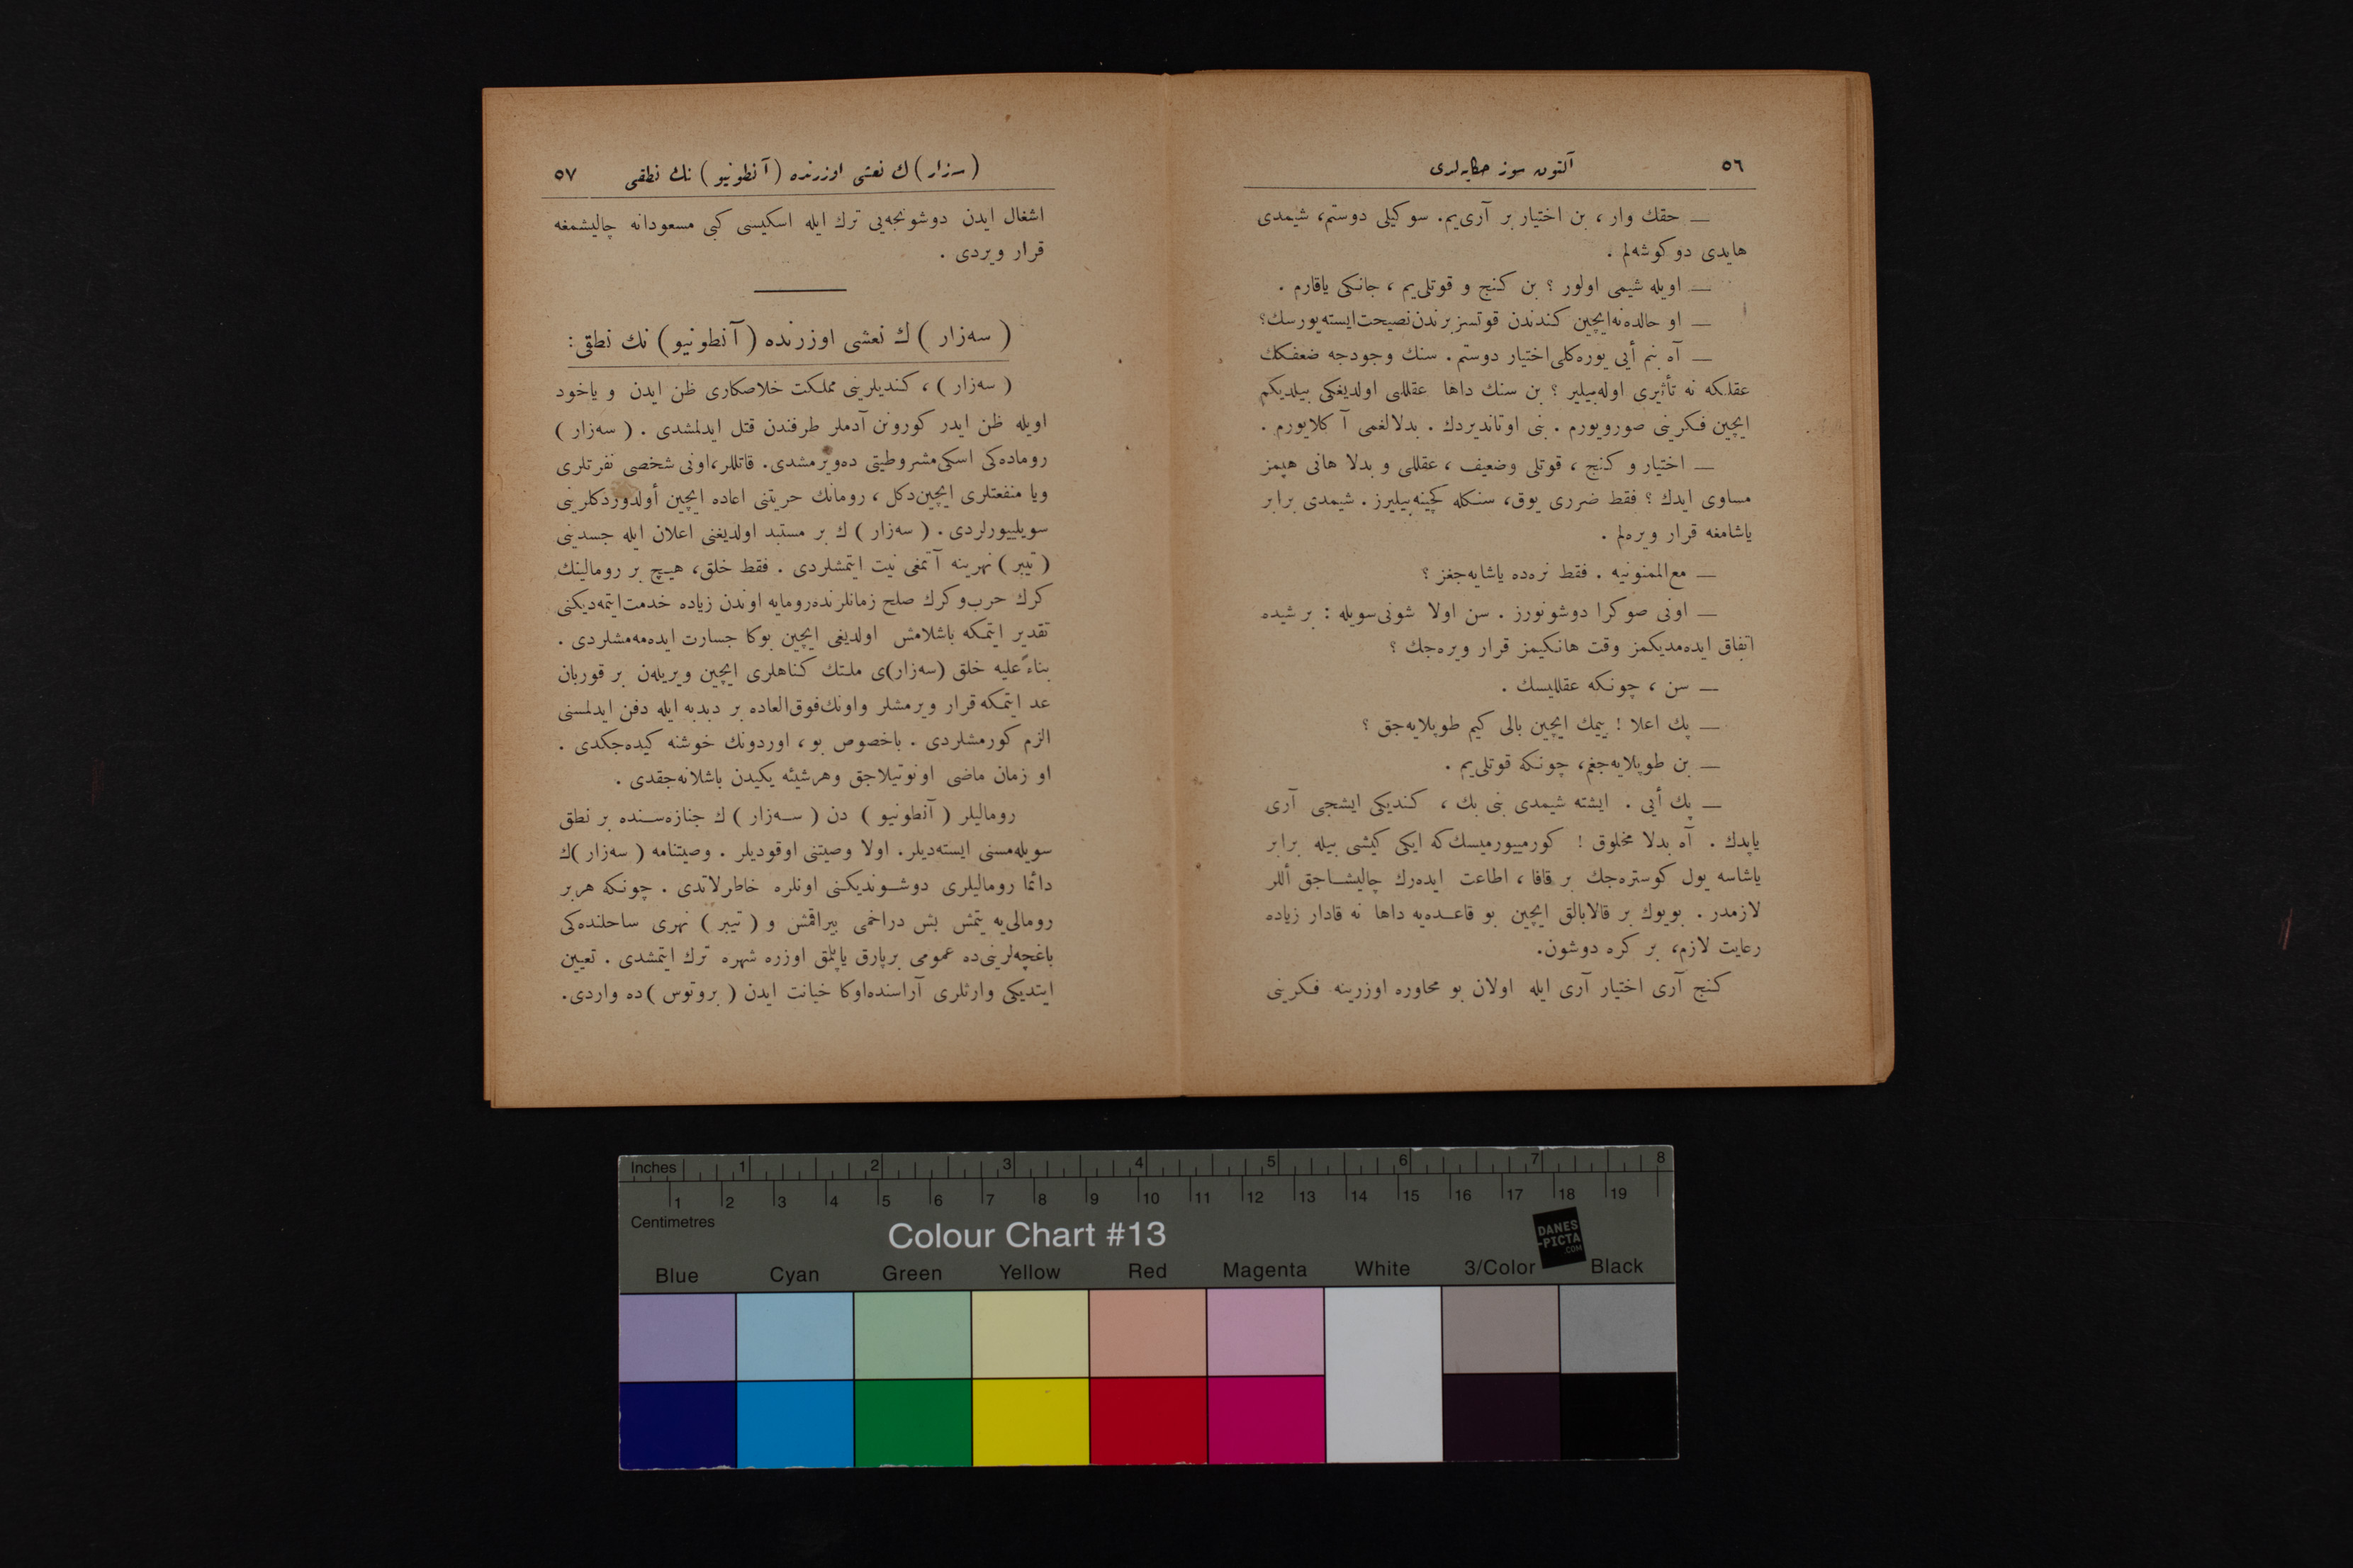 ٥٦ آلتون سوز حكايه‌لری
— حقك وار ، بن اختيار بر آری‌يم. سوكيلی دوستم، شيمدی
هايدی دوكوشه‌لم .
— اويله شيمی اولور ؟ بن كنج و قوتلی‌يم ، جانكی ياقارم .
— او حالده‌نه‌ايچين كندندن قوتسز برندن‌نصيحت‌ايسته‌يورسك؟
— آه بنم أیی يوره‌كلی‌اختيار دوستم. سنك وجودجه ضعفكك
عقلكه نه تأثيری اوله‌بيلير ؟ بن سنك داها عقللی اولديغكی بيلديكم
ايچين فكرينی صورويورم . بنی اوتانديردك . بدلالغمی آكلايورم .
— اختيار و كنج ، قوتلی وضعيف ، عقللی و بدلا هانی هپمز
مساوی ايدك ؟ فقط ضرری يوق، سنكله كچينه‌بيليرز . شيمدی برابر
ياشامغه قرار ويره‌لم .
— مع‌الممنونيه . فقط نره‌ده ياشايه‌جغز ؟
— اونی صوكرا دوشونورز . سن اولا شونی‌سويله : بر شيده
اتفاق ايده‌مديكمز وقت هانكيمز قرار ويره‌جك ؟
— سن ، چونكه عقلليسك .
— پك اعلا ! ييمك ايچين بالی كيم طوپلايه‌جق ؟
— بن طوپلايه‌جغم، چونكه قوتلی‌يم .
— پك أیی . ايشته شيمدی بنی بك ، كنديكی ايشجی آری
ياپدك . آه بدلا مخلوق ! كورمييورميسك‌كه ايكی كيشی بيله برابر
ياشاسه يول كوستره‌جك بر قافا ، اطاعت ايده‌رك چاليشاجق أللر
لازمدر . بويوك بر قالابالق ايچين بو قاعده‌يه داها نه قادار زياده
رعايت لازم، بر كره دوشون.
كنج آری اختيار آری ايله اولان بو محاوره اوزرينه فكرينی
(سزار) ك نعشی اوزرنده (آنطونيو) نك نطقی ٥٧
اشغال ايدن دوشونجه‌يی ترك ايله اسكيسی كبی مسعودانه چاليشمغه
قرار ويردی .
( سه‌زار ) ك نعشی اوزرنده ( آنطونيو ) نك نطقی :
( سه‌زار ) ، كنديلرينی مملكت خلاصكاری ظن ايدن و ياخود
اويله ظن ايدر كورونن آدملر طرفندن قتل ايدلمشدی . ( سه‌زار )
روماده‌كی اسكی‌مشروطيتی ده‌ويرمشدی. قاتللر،اونی شخصی نفرتلری
ويا منفعتلری ايچين‌دكل ، رومانك حريتنی اعاده ايچين أولدوردكلرينی
سويلييورلردی . ( سه‌زار ) ك بر مستبد اولديغنی اعلان ايله جسدينی
( تيبر ) نهرينه آتمغی نيت ايتمشلردی . فقط خلق، هيچ بر رومالينك
كرك حرب‌وكرك صلح زمانلرنده‌رومايه اوندن زياده خدمت‌ايتمه‌ديكنی
تقدير ايتمكه باشلامش اولديغی ايچين بوكا جسارت ايده‌مه‌مشلردی .
بناءً عليه خلق (سه‌زار)ی ملتك كناهلری ايچين ويريلەن بر قوربان
عد ايتمكه قرار ويرمشلر واونك‌فوق‌العاده بر دبدبه ايله دفن ايدلمسنی
الزم كورمشلردی . باخصوص بو ، اوردونك خوشنه كيده‌جكدی .
او زمان ماضی اونوتيلاجق وهرشيئه يكيدن باشلانه‌جقدی .
روماليلر ( آنطونيو ) دن ( سه‌زار ) ك جنازه‌سنده بر نطق
سويله‌مسنی ايسته‌ديلر. اولا وصيتنی اوقوديلر . وصيتنامه ( سه‌زار )ك
دائما روماليلری دوشونديكنی اونلره خاطرلاتدی . چونكه هربر
رومالی‌يه يتمش بش دراخمی بيراقمش و ( تيبر ) نهری ساحلنده‌كی
باغچه‌لرينی‌ده عمومی برپارق ياپلمق اوزره شهره ترك ايتمشدی . تعيين
ايتديكی وارثلری آراسنده‌اوكا خيانت ايدن ( بروتوس )ده واردی.
Inches 1 2 3 4 5 6 7 8
1 2 3 4 5 6 7 8 9 10 11 12 13 14 15 16 17 18 19
Centimetres
Colour Chart #13
DANES
-PICTA
.COM
Blue Cyan Green Yellow Red Magenta White 3/Color Black